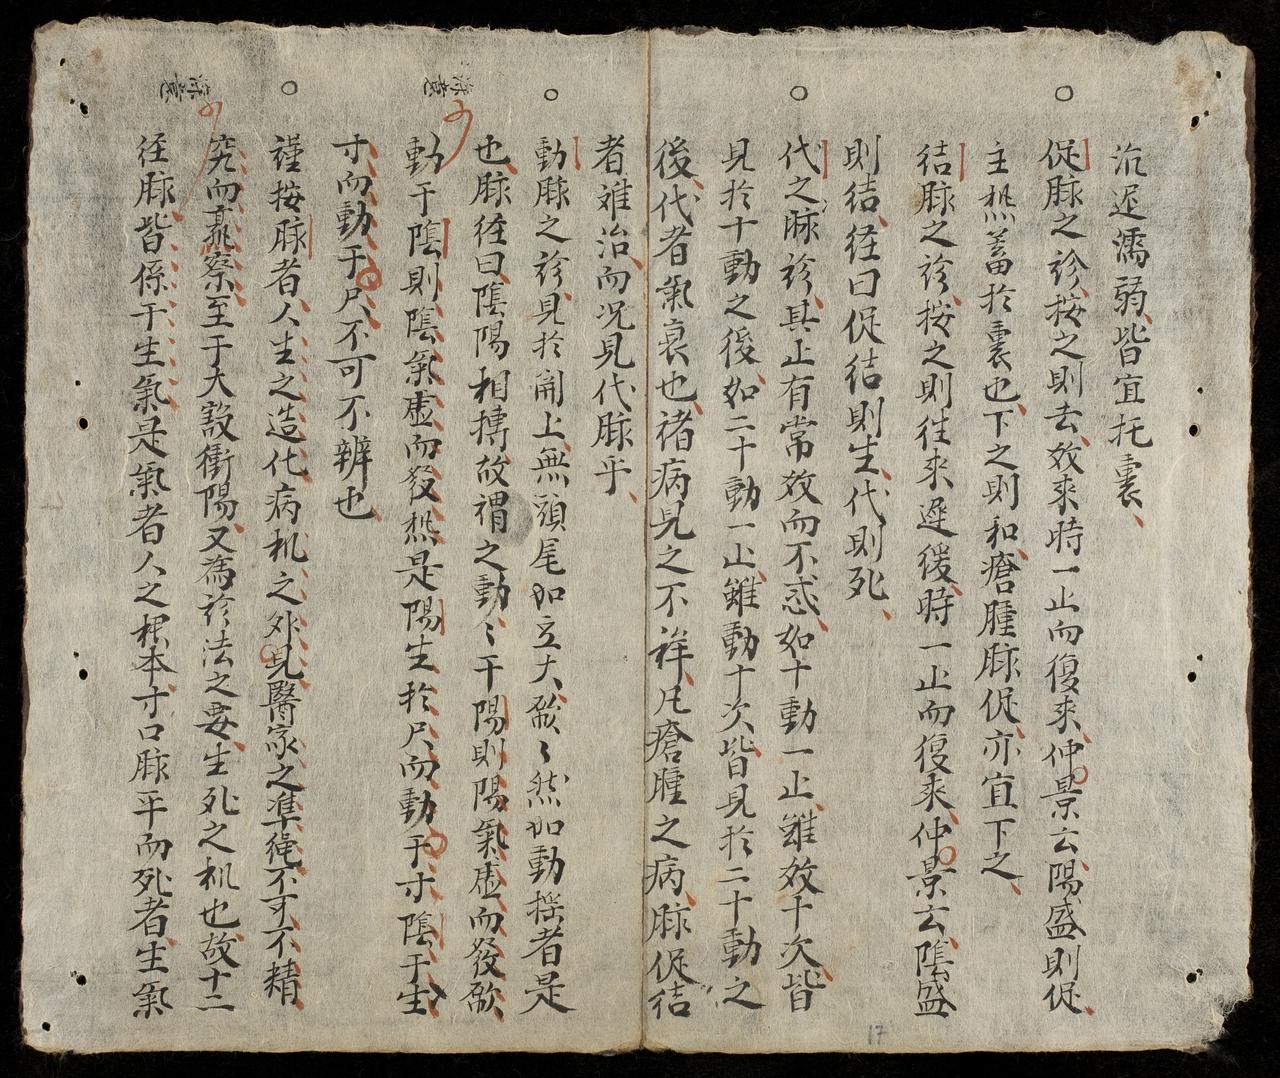 沉迟濡弱皆宜托裏
促脉之診按之則去效来時一止而復来仲景云陽盛則促
主热蓄於裏也下之則和瘡腫脉促亦宜下之
结脉之診按之則徃来遲緩時一止而復来仲景云陰盛
則结径曰促结則生代則死
代之脉診其止有常效而不惑如十動一止雖效十次皆
見於十動之後如二十動一止雖動十次皆見於二十動之
後代者氣衰也諸病見之不祥凡瘡腫之病脉促结
者难治而况見代脉乎
動脉之診見於關上無頭尾如豆大厥〻然如動摇者是
也脉径曰陰陽相搏故謂之動〻于陽則陽氣虚而發厥
動于陰則陰氣虚而發热是陽生於尺而動于寸陰于生
寸而動于尺不可不辨也
謹按脉者人生之造化病机之外見醫家之準绳不可不精
究而熹察至于大谿衝陽又為診法之要生死之机也故十二
径脉皆係于生氣是氣者人之根本寸口脉平而死者生氣